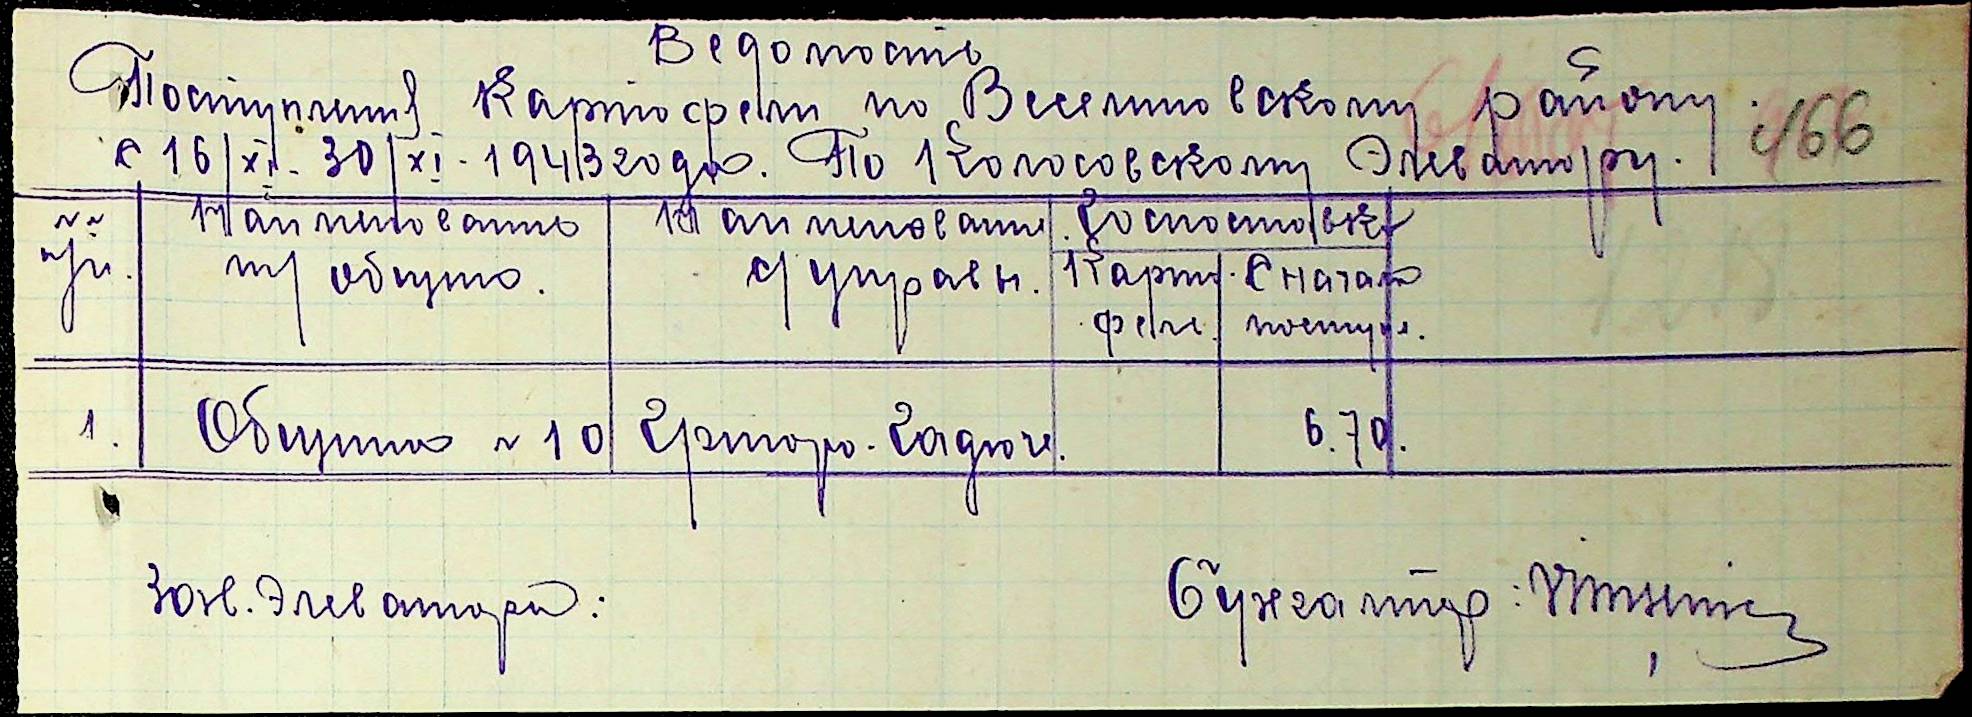 Ведомость
Поступления Картофеля по Веселиновскому району.
с 16/XI - 30/XI - 1943 года. По Колосовскому Элеватору.
166
№№ п/п. Наименование т/ общин. Наименование с/управы. Госпоставка
Картофеля. С начала поступл.
1. Община № 10 6.70.
Зав. Элеватора:
Бухгалтер: